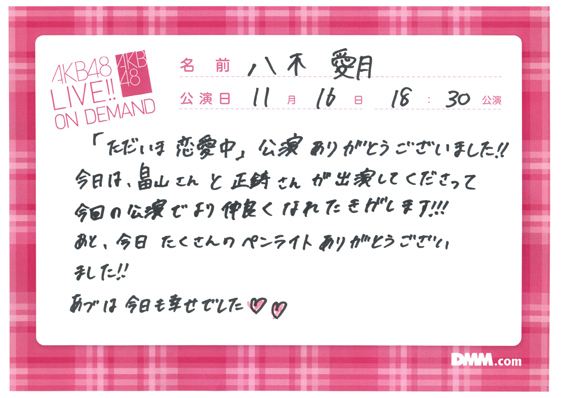 AKB48
LIVE!!
ON DEMAND
AKB
48
名前 八木 愛月
公演日 11月 16日 18:30 公演
「ただいま 恋愛中」公演 ありがとうございました!!
今日は、畠山さん と 正鋳さん が出演してくださって
今回の公演でより仲良くなれたきがします!!!
あと、今日 たくさんのペンライト ありがとうござい
ました!!
あづは 今日も幸せでした♡♡
DMM.com